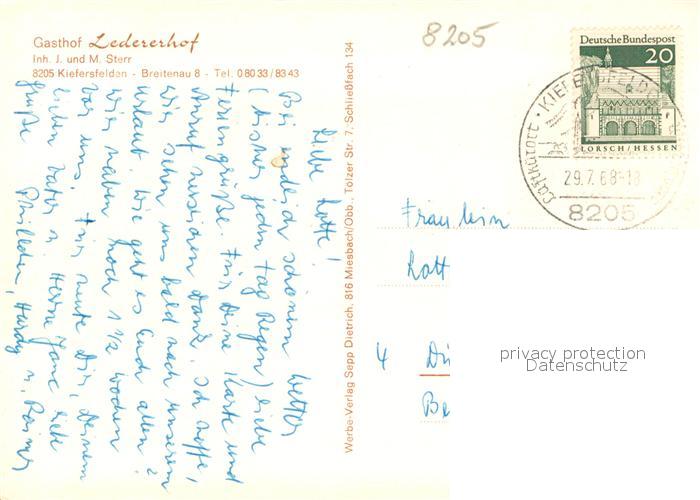 8205
Gasthof Ledererhof
Inh. J. und M. Sterr
8205 Kiefersfelden - Breitenau 8 - Tel. 0 80 33 / 83 43
Deutsche Bundespost
20
LORSCH / HESSEN
KIEFERSFELDEN
Luftkurort
29.7.68-18
8205
Werbe-Verlag Sepp Dietrich, 816 Miesbach/Obb., Tölzer Str. 7, Schließfach 134
Liebe Lotte!
Bei endlich schönem Wetter
(bisher jeden Tag Regen) liebe
Feriengrüße. Für Deine Karte und
Anruf besten Dank. Ich hoffe,
wir sehen uns bald nach unserem
Urlaub. Wie geht es Euch allen?
Wir haben noch 1 1/2 Wochen
vor uns. Für heute Dir, Deinem
lieben Vater u. liebe
Grüße Hardy u. Rainer
Fräulein
Lott
4 Dü
Be
privacy protection
Datenschutz